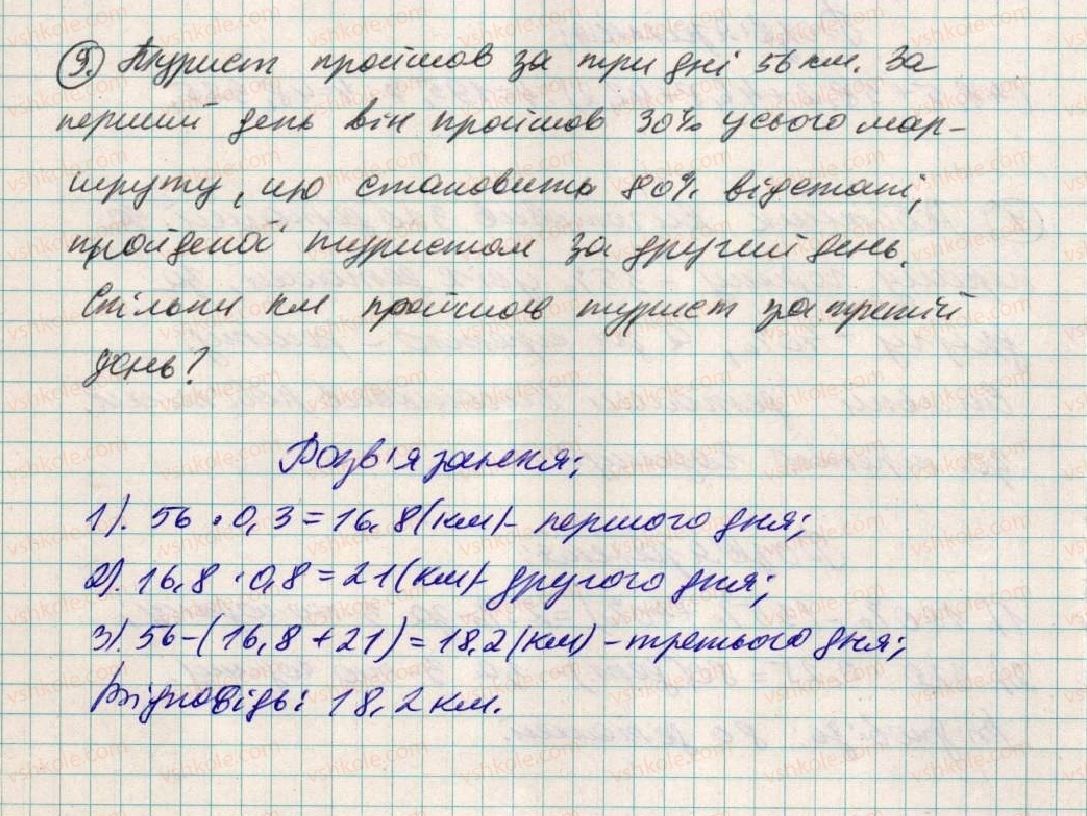 9. Турист пройшов за три дні 56 км. За
перший день він пройшов 30% усього мар-
шруту, що становить 80% відстані,
пройденої туристом за другий день.
Скільки км пройшов турист за третій
день?
Розв'язання:
1). 56 · 0,3 = 16,8 (км) - першого дня;
2). 16,8 : 0,8 = 21 (км) - другого дня;
3). 56 - (16,8 + 21) = 18,2 (км) - третього дня;
Відповідь: 18,2 км.